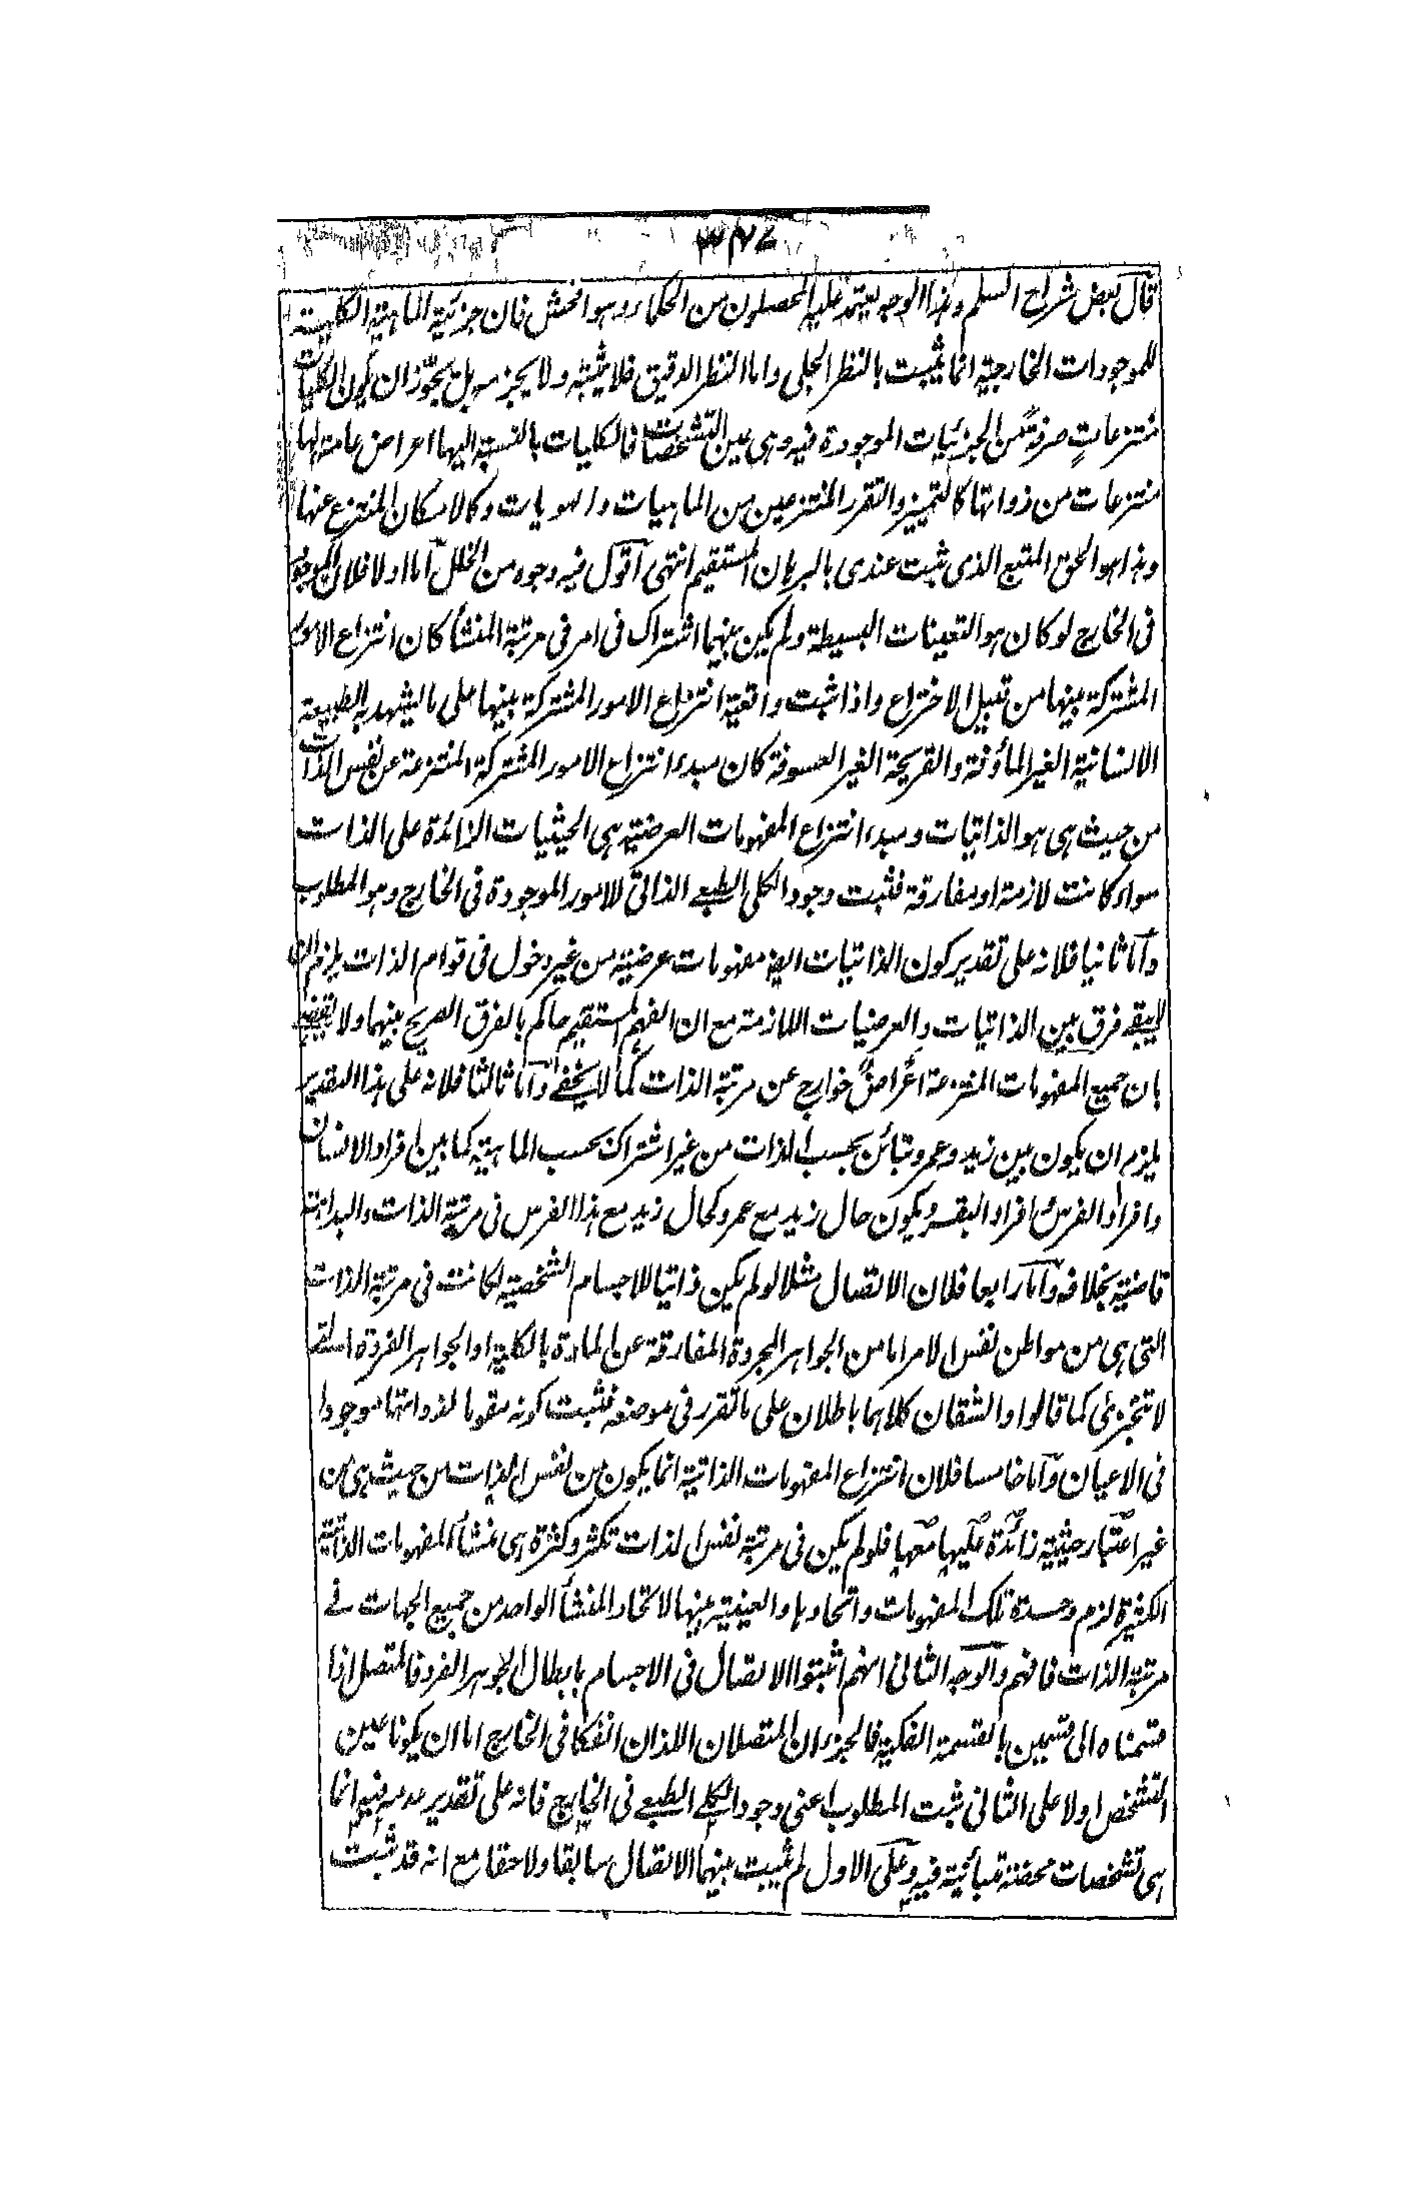 ٣٢٧
قال بعض شراح السلم وهذا الوجه يعتمد عليه المحصلون من الحكماء وهو افحش فان جزئية الماهية الكلية
للموجودات الخارجية انما يثبت بالنظر الجلى واما النظر الدقيق فلا يثبته ولا يجبر به بل يجوّز ان يكون الكليات
منتزعاتٍ صرفةً من الجزئيات الموجودة فيه وهى عين التشخصات فالكليات بالنسبة اليها اعراض عامة لها
منتزعات من ذواتها كالتميز والتقرر المنتزعين من الماهيات والهويات وكالامكان المنتزع عنها
وهذا هو الحق المتبع الذى ثبت عندى بالبرهان المستقيم انتهى اقول فيه وجوه من الخلل اما اولا فلان الموجود
فى الخارج لو كان هو التعينات البسيطة ولم يكن بينهما اشتراك فى امر فى مرتبة المنشأ كان انتزاع الامور
المشتركة بينها من قبيل الاختراع واذا ثبت واقعية انتزاع الامور المشتركة بينها على ما يشهد به الطبيعة
الانسانية الغير المأوفة والقريحة الغير العسوفة كان مبدء انتزاع الامور المشتركة المنتزعة عن نفس الذات
من حيث هى هو الذاتيات ومبدء انتزاع المفهومات العرضية هى الحيثيات الزائدة على الذات
سواء كانت لازمة او مفارقة فثبت وجود الكلى الطبعے الذاتى للامور الموجودة فى الخارج وهو المطلوب
واما ثانيا فلانه على تقدير كون الذاتيات ايضا مفهومات عرضية من غير دخول فى قوام الذات يلزم ان
لا يبقے فرق بين الذاتيات والعرضيات اللازمة مع ان الفهم المستقيم حاكم بالفرق الصريح بينهما ولا
بان جميع المفهومات المنتزعة اعراضٌ خوارج عن مرتبة الذات كما لا يخفے واما ثالثا فلانه على هذا التقدير
يلزم ان يكون بين زيد وعمرو تبائن بحسب الذات من غير اشتراك بحسب الماهية كما بين افراد الانسان
وافراد الفرس وافراد البقر ويكون حال زيد مع عمرو كحال زيد مع هذا الفرس فى مرتبة الذات والبداهة
قاضية بخلافه واما رابعا فلان الاتصال مثلا لو لم يكن ذاتيا للاجسام الشخصية لكانت فى مرتبة الذات
التى هى من مواطن نفس الامر اما من الجواهر المجردة المفارقة عن المادة بالكلية او الجواهر الفردة التے
لا تتجزئ كما قالوا والشقان كلاهما باطلان على ما تقرر فى موضعه فثبت كونه مقوما لذواتها موجودا
فى الاعيان واما خامسا فلان انتزاع المفهومات الذاتية انما يكون من نفس الذات من حيث هى من
غير اعتبار حيثية زائدة عليها معها فلو لم يكن فى مرتبة نفس الذات تكثر وكثرة هى منشأ المفهومات الذاتية
الكثيرة لزم وحدة تلك المفهومات واتحادها والعينية بينها لاتحاد المنشأ الواحد من جميع الجهات فے
مرتبة الذات فافهم والوجه الثانى انهم اثبتوا الاتصال فى الاجسام بابطال الجوهر الفرد فالمتصل اذا
قسمناه الى قسمين بالقسمة الفكية فالجزءان المتصلان اللذان انفكا فى الخارج اما ان يكونا عين
التشخص او لا على الثانى ثبت المطلوب اعنى وجود الكلے الطبعے فى الخارج فانه على تقدير عدمه فيه انما
هى تشخصات محضة متبائنة فيه وعلى الاول لم يثبت بينهما الاتصال سابقا ولاحقا مع انه قد ثبت